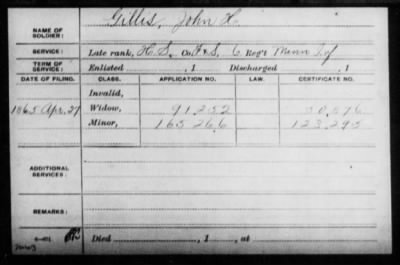 NAME OF SOLDIER: Gillis, John H.
SERVICE: Late rank, H.S., Co. F & S, 6 Reg't Minn Inf
TERM OF SERVICE: Enlisted , 1 Discharged , 1
DATE OF FILING. CLASS. APPLICATION NO. LAW. CERTIFICATE NO.
Invalid,
1865 Apr. 27 Widow, 91,252
Minor, 165 266 123,295
ADDITIONAL SERVICES:
REMARKS:
Died , 1 , at